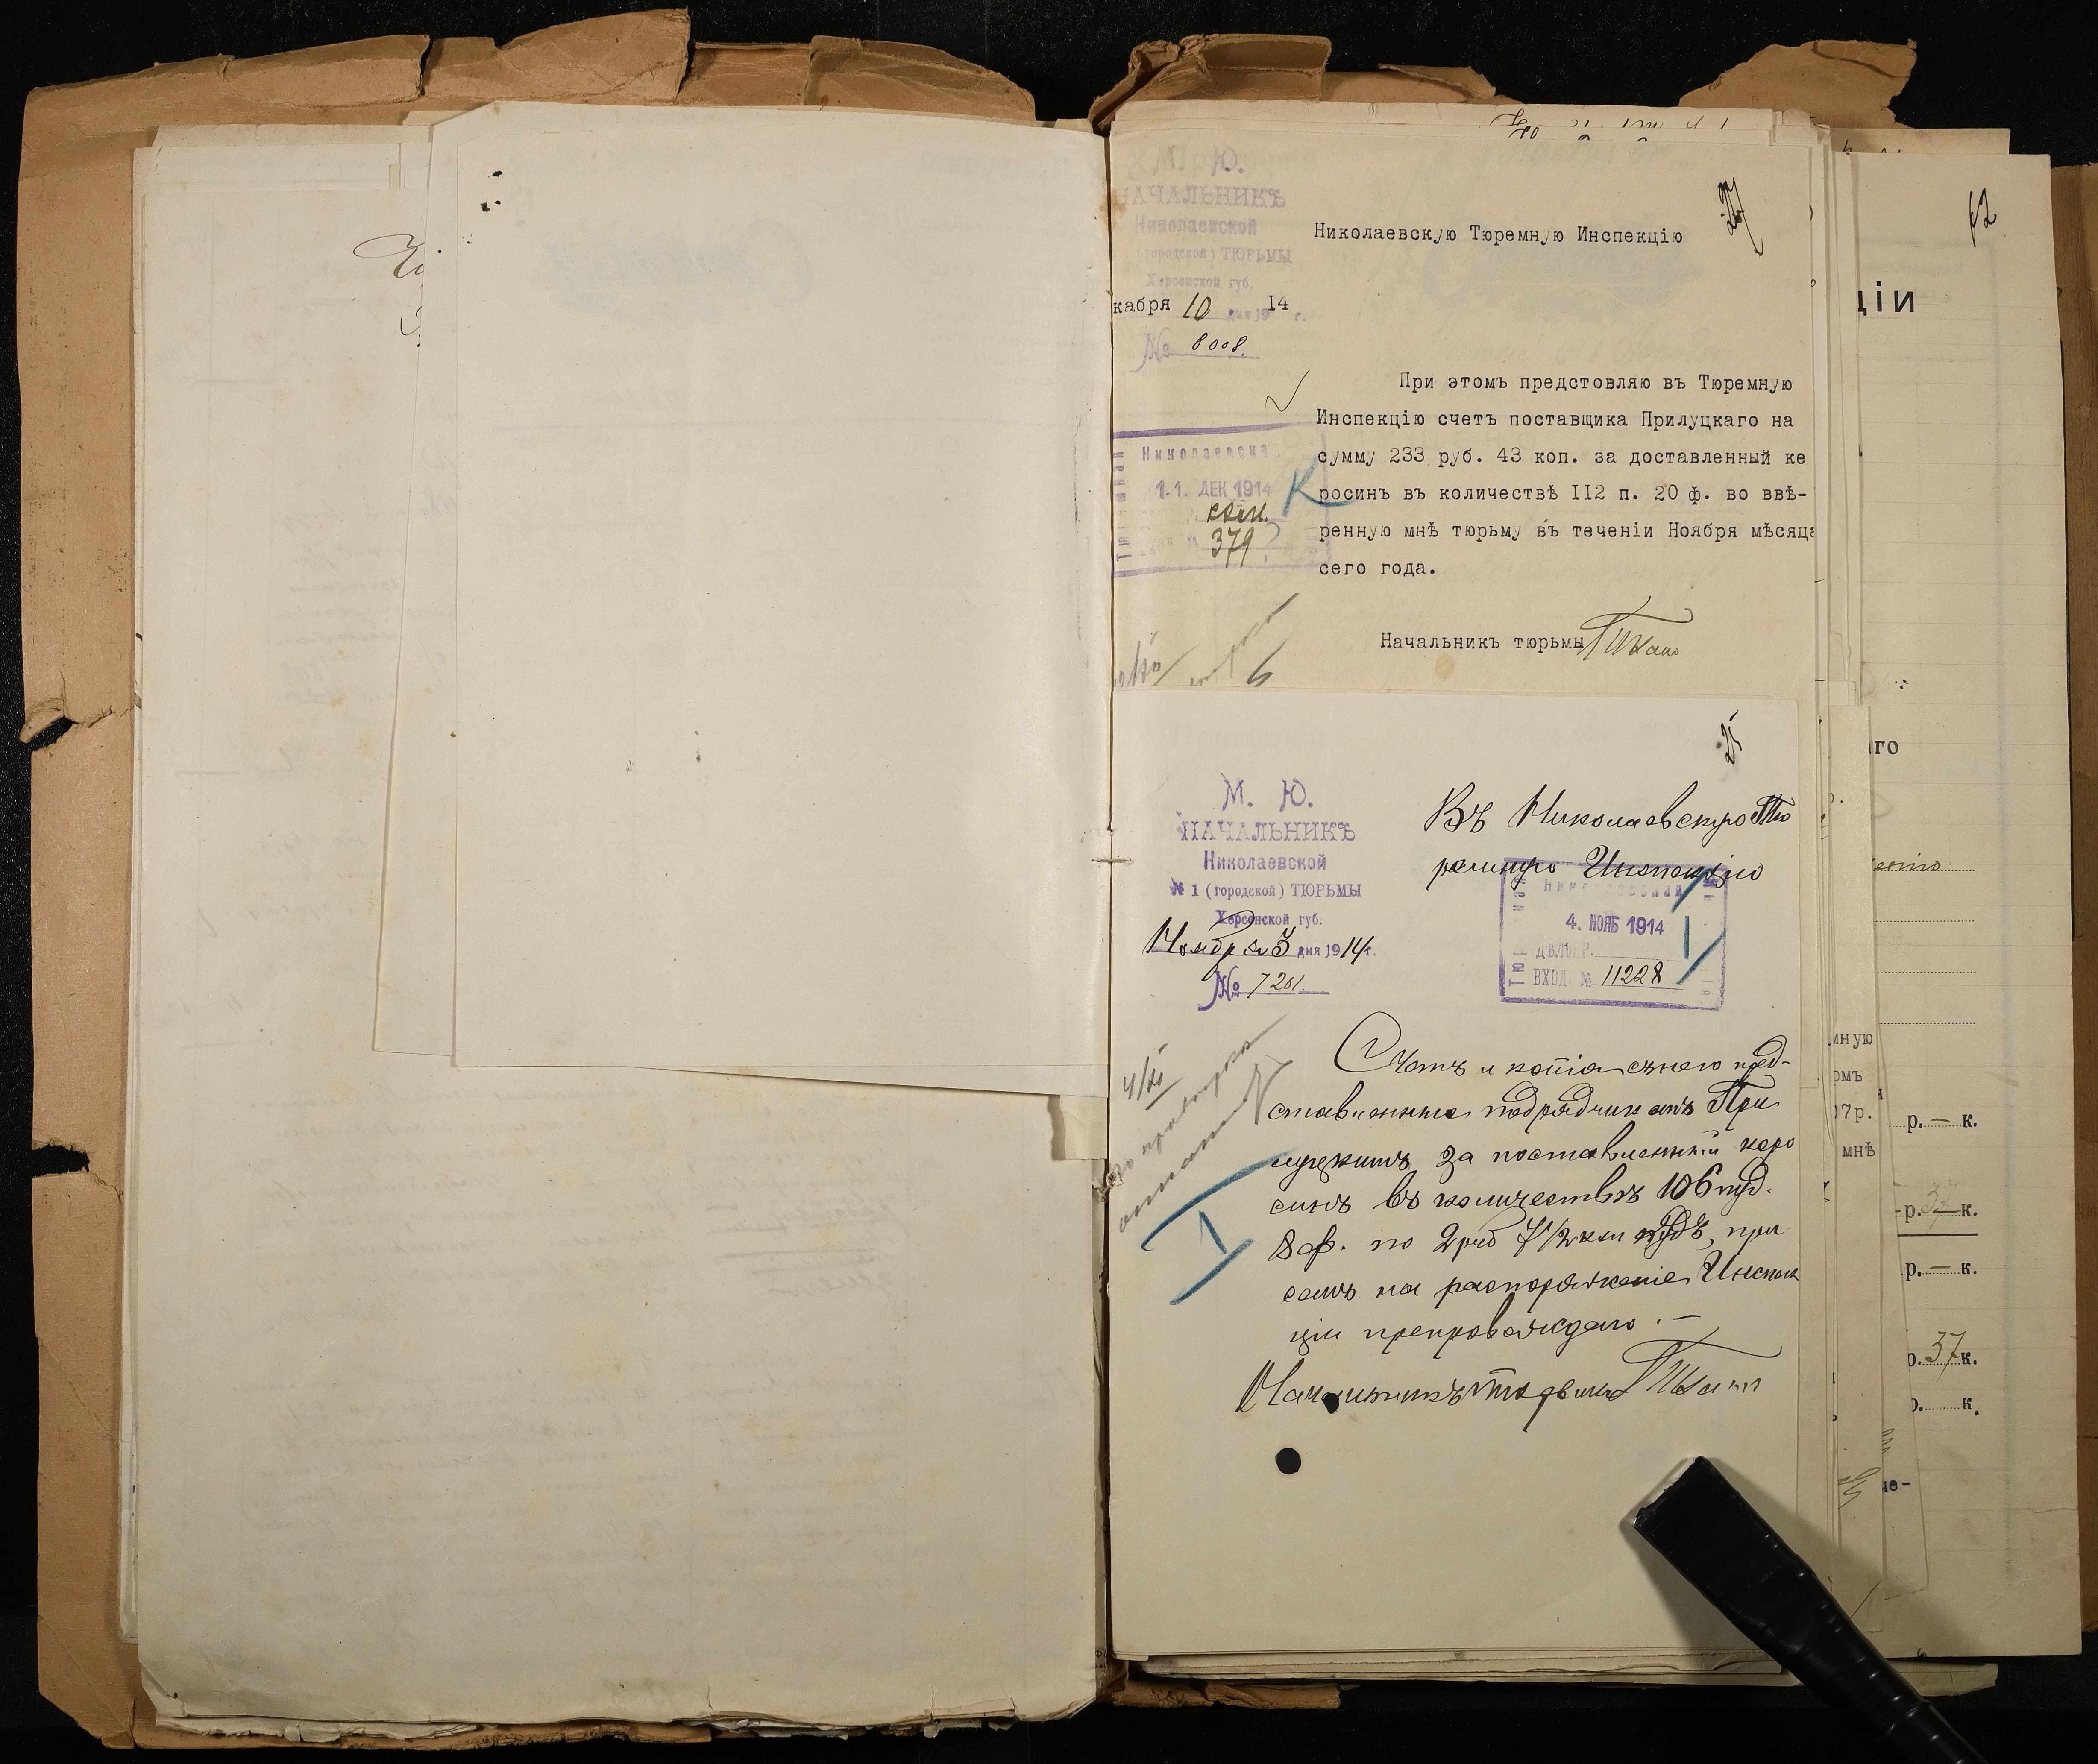 М. Ю.
НАЧАЛЬНИКЪ
Николаевской
(городской) ТЮРЬМЫ
Херсонской губ.
кабря 10 дня 1914 г.
№ 8008.
27
Николаевскую Тюремную Инспекцію
При этомъ предстовляю въ Тюремную
Инспекцію счетъ поставщика Прилуцкаго на
сумму 233 руб. 43 коп. за доставленный ке
росинъ въ количествѣ II2 п. 20 ф. во ввѣ-
ренную мнѣ тюрьму въ теченіи Ноября мѣсяца
сего года.
Николаевская
11. ДЕК 1914
379
Начальникъ тюрьмы
М. Ю.
НАЧАЛЬНИКЪ
Николаевской
№ 1 (городской) ТЮРЬМЫ
Херсонской губ.
Ноября 3 дня 1914 г.
№ 7201.
Въ Николаевскую Тю
ремную Инспекцію
Николаевская
4. НОЯБ 1914
ДѢЛОПР.
ВХОД. № 11228
Счетъ и копія съ него пред-
ставленные подрядчикомъ При
луцкимъ за поставленный керо
синъ въ количествѣ 106 пуд.
8 ф. по 2 руб 7 1/2 коп пудъ, при
семъ на распоряженіе Инспек
ціи препровождаю.-
Начальникъ тюрьмы
62
ціи
го
мную
омъ
07р.
мнѣ
р.—к.
р.—к.
р.—к.
р.37к.
р. к.
че-